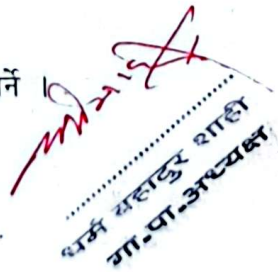 र्ने ।
धर्म बहादुर शाही
गा.पा.अध्यक्ष